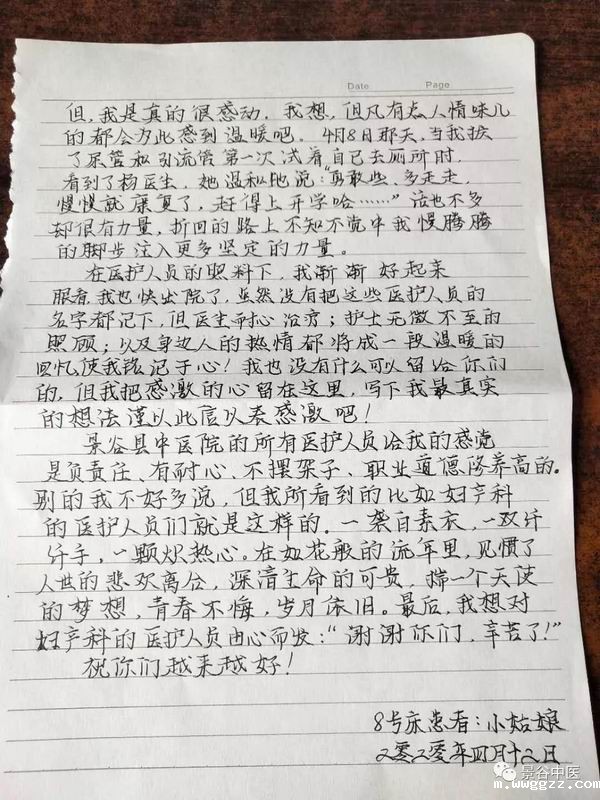 Date Page
但，我是真的很感动，我想，但凡有点人情味儿
的都会为此感到温暖吧。4月8日那天，当我拔
了尿管和引流管第一次试着自己去厕所时，
看到了杨医生，她温和地说："勇敢些、多走走，
慢慢就康复了，赶得上开学哈……"话也不多
却很有力量，折回的路上不知不觉中我慢腾腾
的脚步注入更多坚定的力量。
在医护人员的照料下，我渐渐好起来
眼看我也快出院了，虽然没有把这些医护人员的
名字都记下，但医生耐心治疗；护士无微不至的
照顾；以及身边人的热情都将成一段温暖的
回忆使我铭记于心！我也没有什么可以留给你们
的，但我把感激的心留在这里，写下我最真实
的想法谨以此信以表感激吧！
景谷县中医院的所有医护人员给我的感觉
是负责任、有耐心、不摆架子、职业道德修养高的。
别的我不好多说，但我所看到的比如妇产科
的医护人员们就是这样的。一袭白素衣，一双纤
纤手，一颗炽热心。在如花般的流年里，见惯了
人世的悲欢离合，深清生命的可贵，揣一个天使
的梦想，青春不悔，岁月依旧。最后，我想对
妇产科的医护人员由心而发："谢谢你们，辛苦了！"
祝你们越来越好！
8号床患者：小姑娘
二零二零年四月十二日
景谷中医
m.wwggzz.com